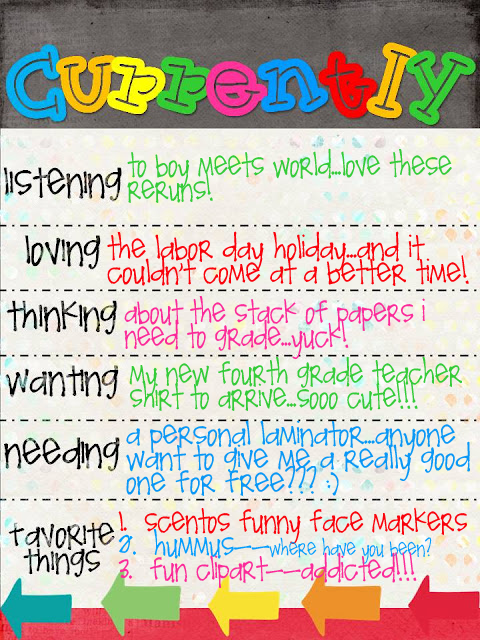 Currently
listening
to boy meets world...love these
reruns!
loving
the labor day holiday...and it
couldn't come at a better time!
thinking
about the stack of papers i
need to grade...yuck!
wanting
my new fourth grade teacher
shirt to arrive...sooo cute!!!
needing
a personal laminator...anyone
want to give me a really good
one for free??? :)
favorite
things
1. scentos funny face markers
2. hummus---where have you been?
3. fun clipart---addicted!!!